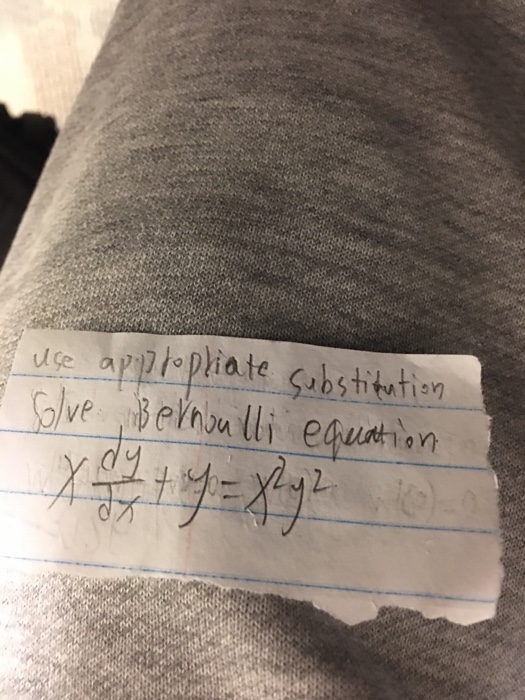 use appropriate substitution
Solve Bernoulli equation
x dy/dx + y = x²y²